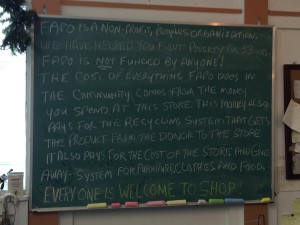 FAPO IS A NON-PROFIT, PEOPLES ORGANIZATION.
WE HAVE HELPED YOU FIGHT POVERTY FOR 33
FAPO IS NOT FUNDED BY ANYONE!
THE COST OF EVERYTHING FAPO DOES IN
THE COMMUNITY COMES FROM THE MONEY
YOU SPEND AT THIS STORE. THIS MONEY ALSO
PAYS FOR THE RECYCLING SYSTEM THAT GETS
THE PRODUCT FROM THE DONOR TO THE STORE
IT ALSO PAYS FOR THE COST OF THE STORE AND GIVE
AWAY-SYSTEM FOR FURNITURE, CLOTHES AND FOOD.
EVERYONE IS WELCOME TO SHOP!